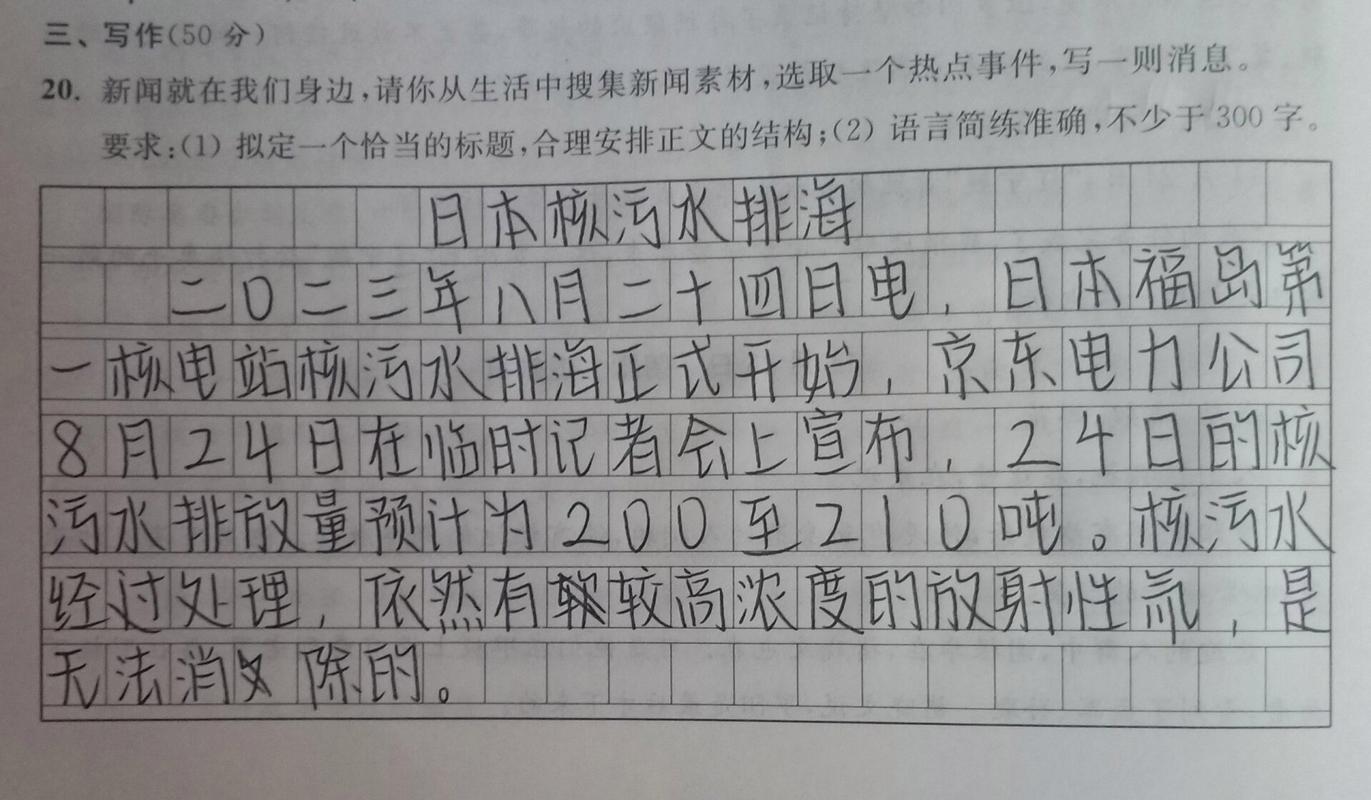 三、写作(50分)
20. 新闻就在我们身边,请你从生活中搜集新闻素材,选取一个热点事件,写一则消息。
要求:(1) 拟定一个恰当的标题,合理安排正文的结构;(2) 语言简练准确,不少于300字。
日本核污水排海
二〇二三年八月二十四日电，日本福岛第
一核电站核污水排海正式开始，京东电力公司
8月24日在临时记者会上宣布，24日的核
污水排放量预计为200至210吨。核污水
经过处理，依然有较高浓度的放射性氚，是
无法消除的。